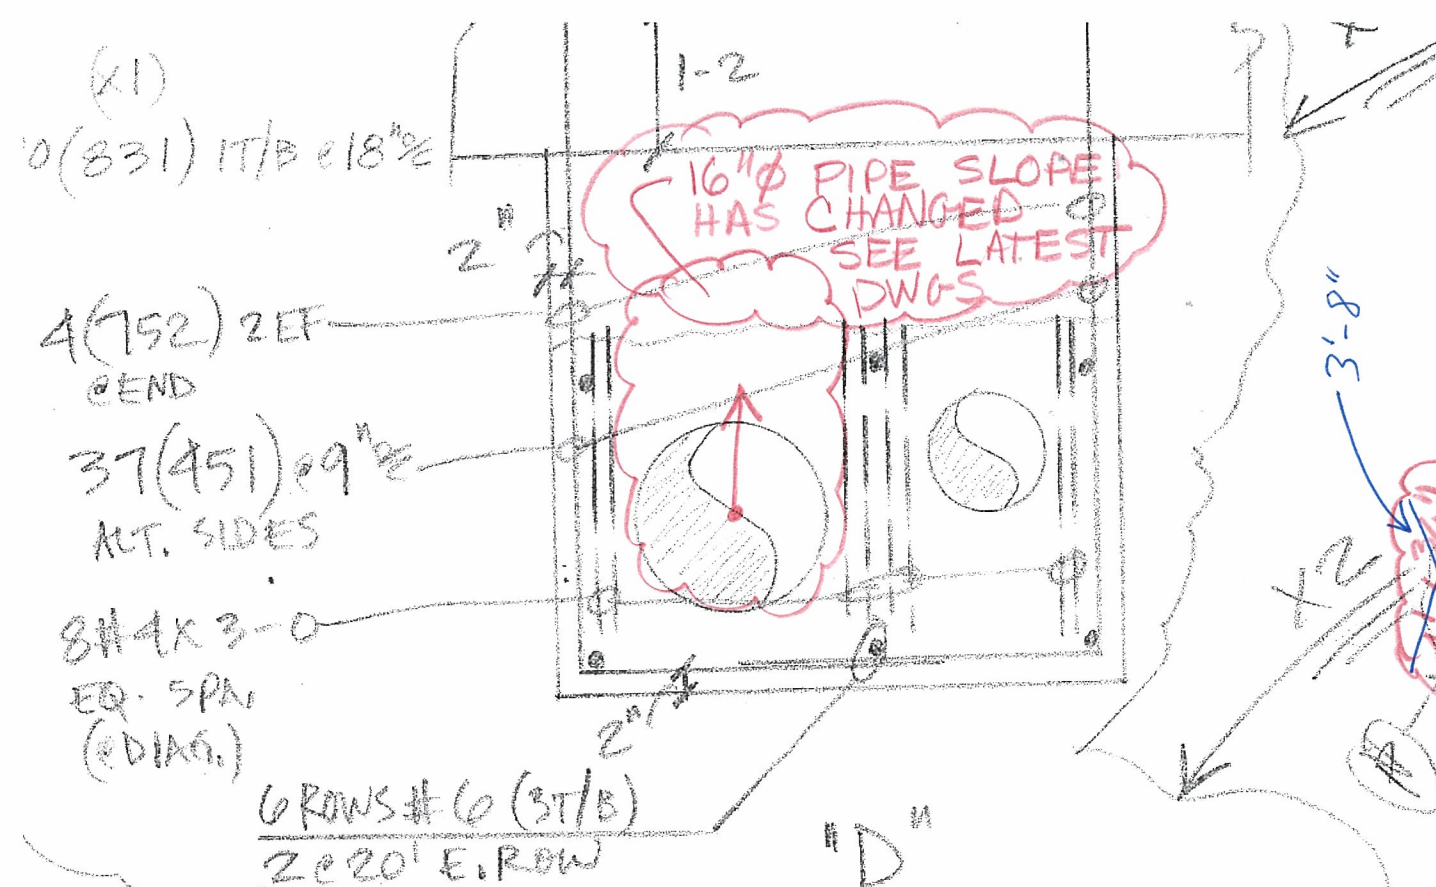 (x1)
0(831) 1T/B @ 18"
1-2
16"ø PIPE SLOPE
HAS CHANGED
SEE LATEST
DWGS
2"
4(752) 2 EF
@ END
37(451) @ 9"
ALT. SIDES
8#4 x 3-0
EQ. SPA,
(@ DIAG.)
2"
6 ROWS #6 (3T/B)
2 @ 20' E. ROW
"D"
3'-8"
x2
A